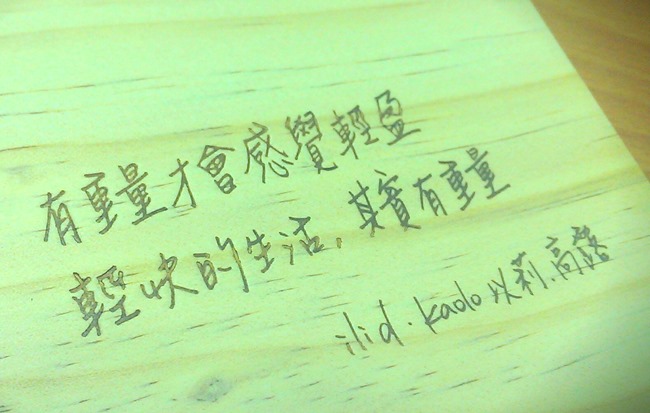 有重量才會感覺輕盈
輕快的生活，其實有重量
ilid．kaolo 以莉．高露